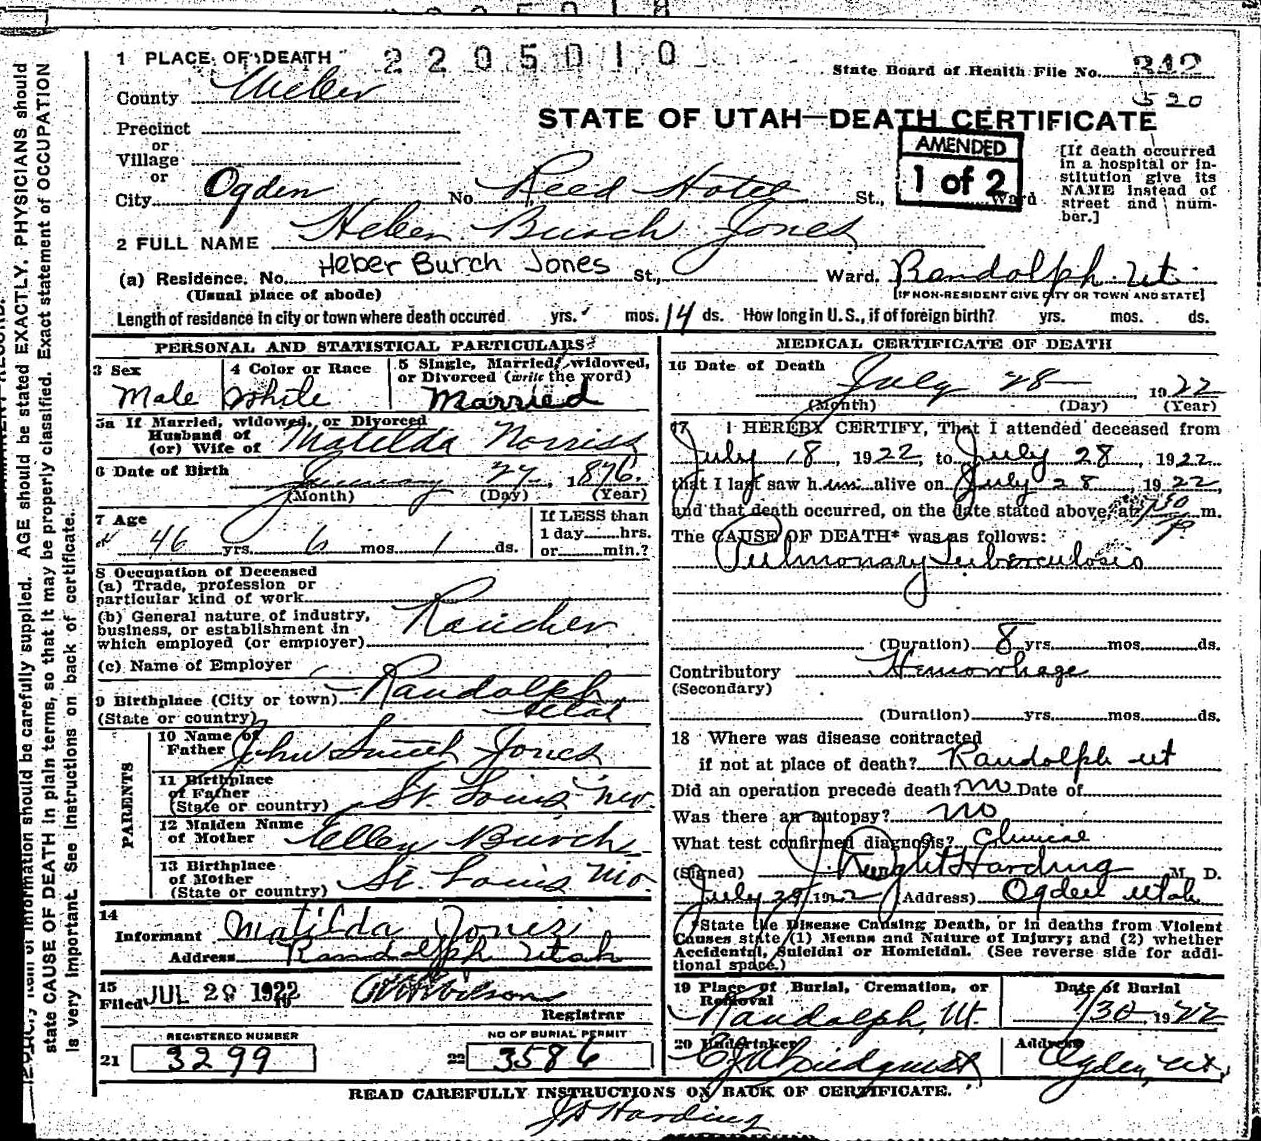 1 PLACE OF DEATH 2205010
State Board of Health File No. 342
520
County Weber
STATE OF UTAH—DEATH CERTIFICATE
Precinct
or
Village
or
AMENDED
1 of 2
[If death occurred in a hospital or institution give its NAME instead of street and number.]
City Ogden No. Reed Hotel St., Ward
2 FULL NAME Heber Burch Jones
(a) Residence. No. Heber Burch Jones St., Ward. Randolph Ut.
(Usual place of abode) [IF NON-RESIDENT GIVE CITY OR TOWN AND STATE]
Length of residence in city or town where death occured yrs. mos. 14 ds. How long in U.S., if of foreign birth? yrs. mos. ds.
PERSONAL AND STATISTICAL PARTICULARS
3 Sex 4 Color or Race 5 Single, Married, widowed, or Divorced (write the word)
Male White Married
5a If Married, widowed, or Divorced
Husband of
(or) Wife of Matilda Norriss
6 Date of Birth January 27, 1876.
(Month) (Day) (Year)
7 Age If LESS than
46 yrs. 6 mos. 1 ds. 1 day hrs.
or min.?
8 Occupation of Deceased
(a) Trade, profession or
particular kind of work
(b) General nature of industry,
business, or establishment in
which employed (or employer) Rancher
(c) Name of Employer
9 Birthplace (City or town) Randolph
(State or country) Utah
PARENTS
10 Name of Father John Smith Jones
11 Birthplace of Father (State or country) St. Louis Mo.
12 Maiden Name of Mother Ellen Burch
13 Birthplace of Mother (State or country) St. Louis Mo.
14
Informant Matilda Jones
Address Randolph Utah
15
Filed JUL 29 1922
Registrar
REGISTERED NUMBER NO OF BURIAL PERMIT
21 3299 22 3586
MEDICAL CERTIFICATE OF DEATH
16 Date of Death July 28 1922
(Month) (Day) (Year)
17 I HEREBY CERTIFY, That I attended deceased from
July 18, 1922, to July 28, 1922
that I last saw him alive on July 28, 1922,
and that death occurred, on the date stated above, at 7 30 P m.
The CAUSE OF DEATH* was as follows:
Pulmonary Tuberculosis
(Duration) 8 yrs. mos. ds.
Contributory Hemorrhage
(Secondary)
(Duration) yrs. mos. ds.
18 Where was disease contracted
if not at place of death? Randolph Ut
Did an operation precede death? no Date of
Was there an autopsy? no
What test confirmed diagnosis? Clinical
(Signed) J Dwight Harding M. D.
July 29, 1922 (Address) Ogden Utah
*State the Disease Causing Death, or in deaths from Violent
Causes state (1) Means and Nature of Injury; and (2) whether
Accidental, Suicidal or Homicidal. (See reverse side for addi-
tional space.)
19 Place of Burial, Cremation, or Removal Date of Burial
Randolph, Ut. 7/30 1922
20 Undertaker Address
Ogden, Ut.
READ CAREFULLY INSTRUCTIONS ON BACK OF CERTIFICATE.
J D Harding
information should be carefully supplied. AGE should be stated EXACTLY, PHYSICIANS should
state CAUSE OF DEATH in plain terms, so that it may be properly classified. Exact statement of OCCUPATION
is very important. See instructions on back of certificate.